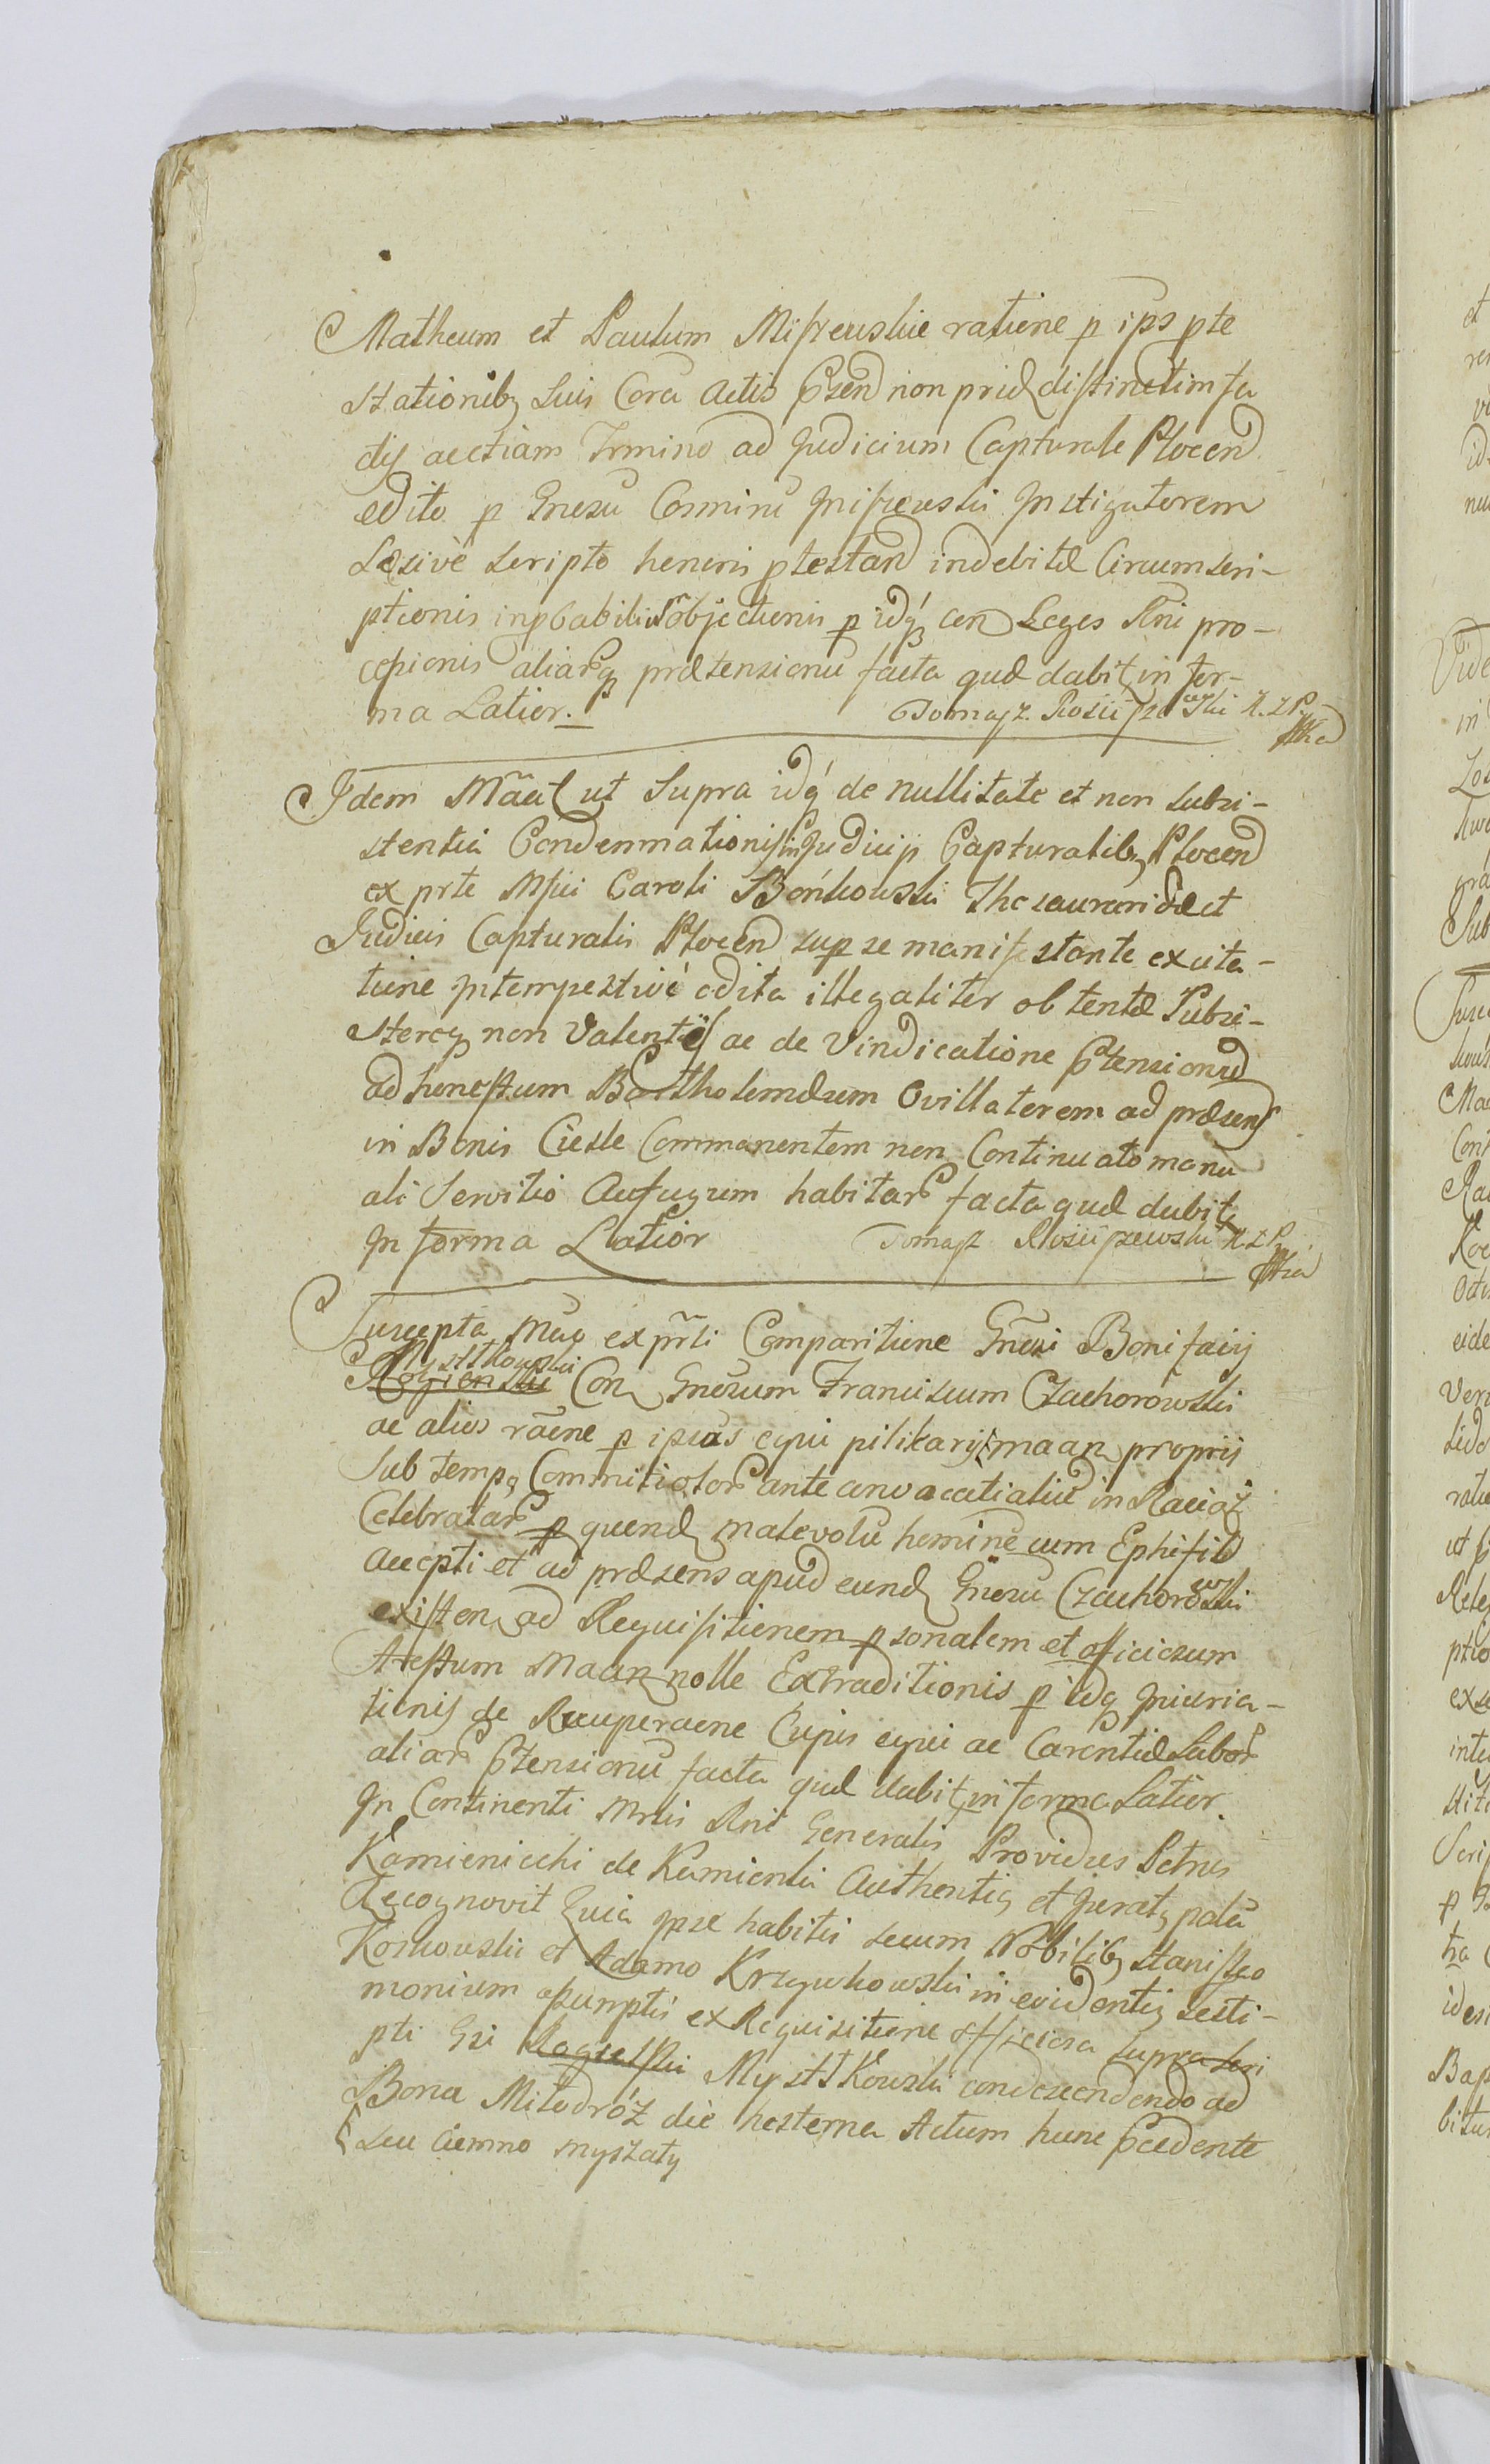 Matheum et Paulum Miszewskie ratione p ips pte
stationibq suis Cora Actis Pzend non prid distinctim fa
ctis ac etiam Termino ad Judicium Capturale Plocen
edito p Gnesu Cosminu Miszewski Instigatorem
Læsivè scripto honoris ptestan indebitæ Circumscri-
ptionis inpbabilis objectionis p idq con Leges Rni pro-
cessionis aliarq prætensionu facta quæ dabit in for-
ma Latior. Tomasz Rościszewski R. Z. P.
Idem Māāt ut supra idq de nullitate et non subsi-
stentia Condemnationis in Judicijs Capturalibq Plocen
ex prte Mfici Caroli Bońkowski Thesauraridæ et
Judicis Capturalis Plocen sup se manifestante ex cita-
tione intempestivè edita illegaliter obtentæ Subsi-
stereq non valentis ac de vindicatione Ptensionu
ad honestum Bartholemæum Ovillatorem ad præsens
in Bonis Ciesle Commanentem non Continuato manu
ali servitio Aufugum habitar facta quæ dabit
In forma Latior Tomasz Rościszewski R. Z. P.
Suscepta Mao ex prti Comparitione Gnesi Bonifacij
Mysttkowski
Rogienski Con Gnesum Franciscum Czachorowski
ac alios rāone p ipsius equi pilikarij maan proprij
sub tempq Commitiolor ante convocatialiu in Raciąż
Celebratar p quend malevolu hominē cum Ephifio
accepti et ad præsens apud eund Gnesu Czachorowski
existen ad Requisitionem psonalem et officiosum
Arestum maan nolle Extraditionis p idq iniuria-
tionis de Recuperaone Cujus equi ac Carentiæ Labor
aliar Ptensionu facta quæ dabit in forma Latior.
In Continenti Mrlis Rni Generalis Providus Petrus
Kamienicchi de Kamionki Authenticq et juratq palā
Recognovit Quia ipse habitis secum Nobilibq Stanislao
Korkowski et Adamo Krzywkowski in evidentiq testi-
monium assumptis ex Requisitione officiosa suprascri
pti Gsi Rogienski Mysttkowski condescendendo ad
Bona Miłodróż die hesterna Actum hunc Pcedente
seu ciemno myszaty